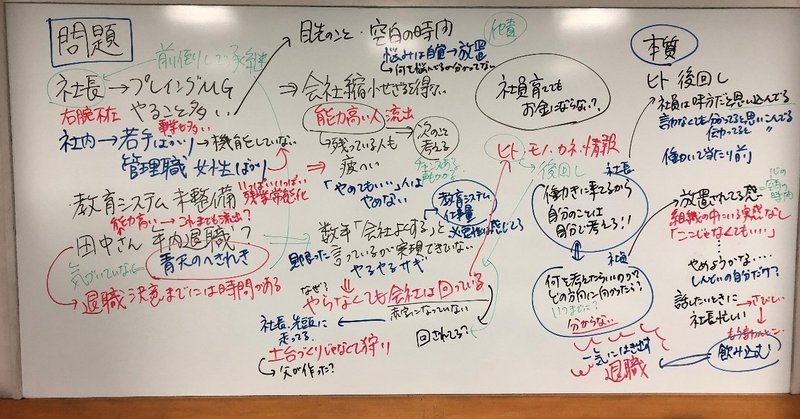 問題
前倒しして承継
社長→プレイングMG
右腕不在 やること多い
事業も多い
社内→若手ばかり→機能していない
管理職 女性ばかり
教育システム未整備
いっぱいいっぱい
残業常態化
能力高い→これまでも流出?
田中さん 年内退職?
気づいていない
青天のへきれき
退職決意までには時間がある
目先のこと・空白の時間
悩みは自覚→放置
→何を悩んでるか分かってない
⇒会社縮小せざるを得ない
能力高い人流出
→残っている人も
疲へい
次のこと
考える
⇒「やめてもいい」人は
やめない
教育システム
仕事量
必要性は感じてる
数年「会社よくする」と
言っているが実現できていない
やるやるサギ
なぜ?
やらなくても会社は回っている
赤字になっていない
回されてる?
社長、先頭に
走ってる
土台づくりじゃなくて狩り
→父が作った?
社員育てても
お金にならない?
ヒト・モノ・カネ・情報
後回し
社長
働きに来てるから
自分のことは
自分で考えろ!!
社員
何を考えたらいいのか?
どの方向に向かったら?
いつまでに?
分からない
一気にはき出す
退職
本質
ヒト 後回し
社員は味方だと思い込んでる
言わなくても分かってると思いこんでる
伝わってると 〃
働いて当たり前
放置されてる感
=心の
空白の
時間
組織の中にいる実感なし
「ここじゃなくても・・・」
やめようかな・・・
しんどいの自分だけ?
話したいときに
社長忙しい
→さびしい
もう言わんとこ
飲み込む